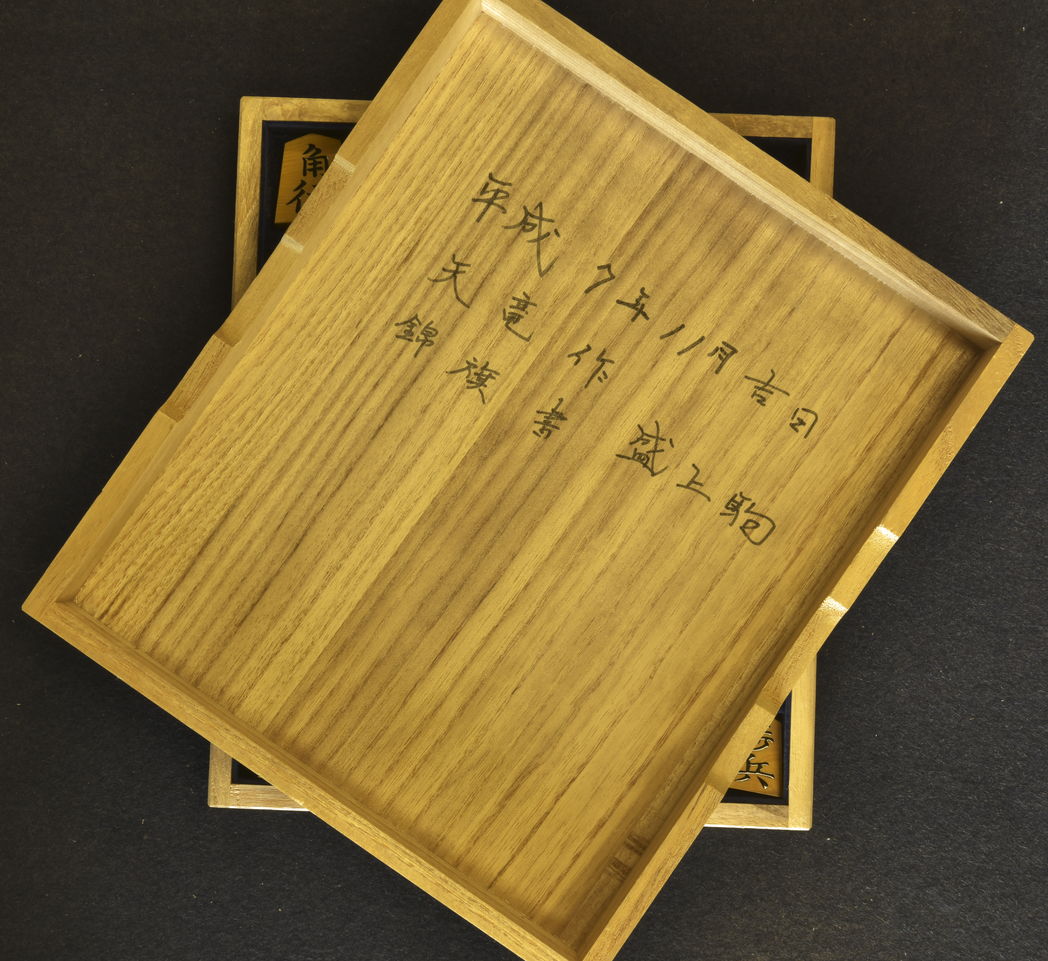 平成7年11月吉日
天竜作 盛上駒
錦旗書
角行
兵